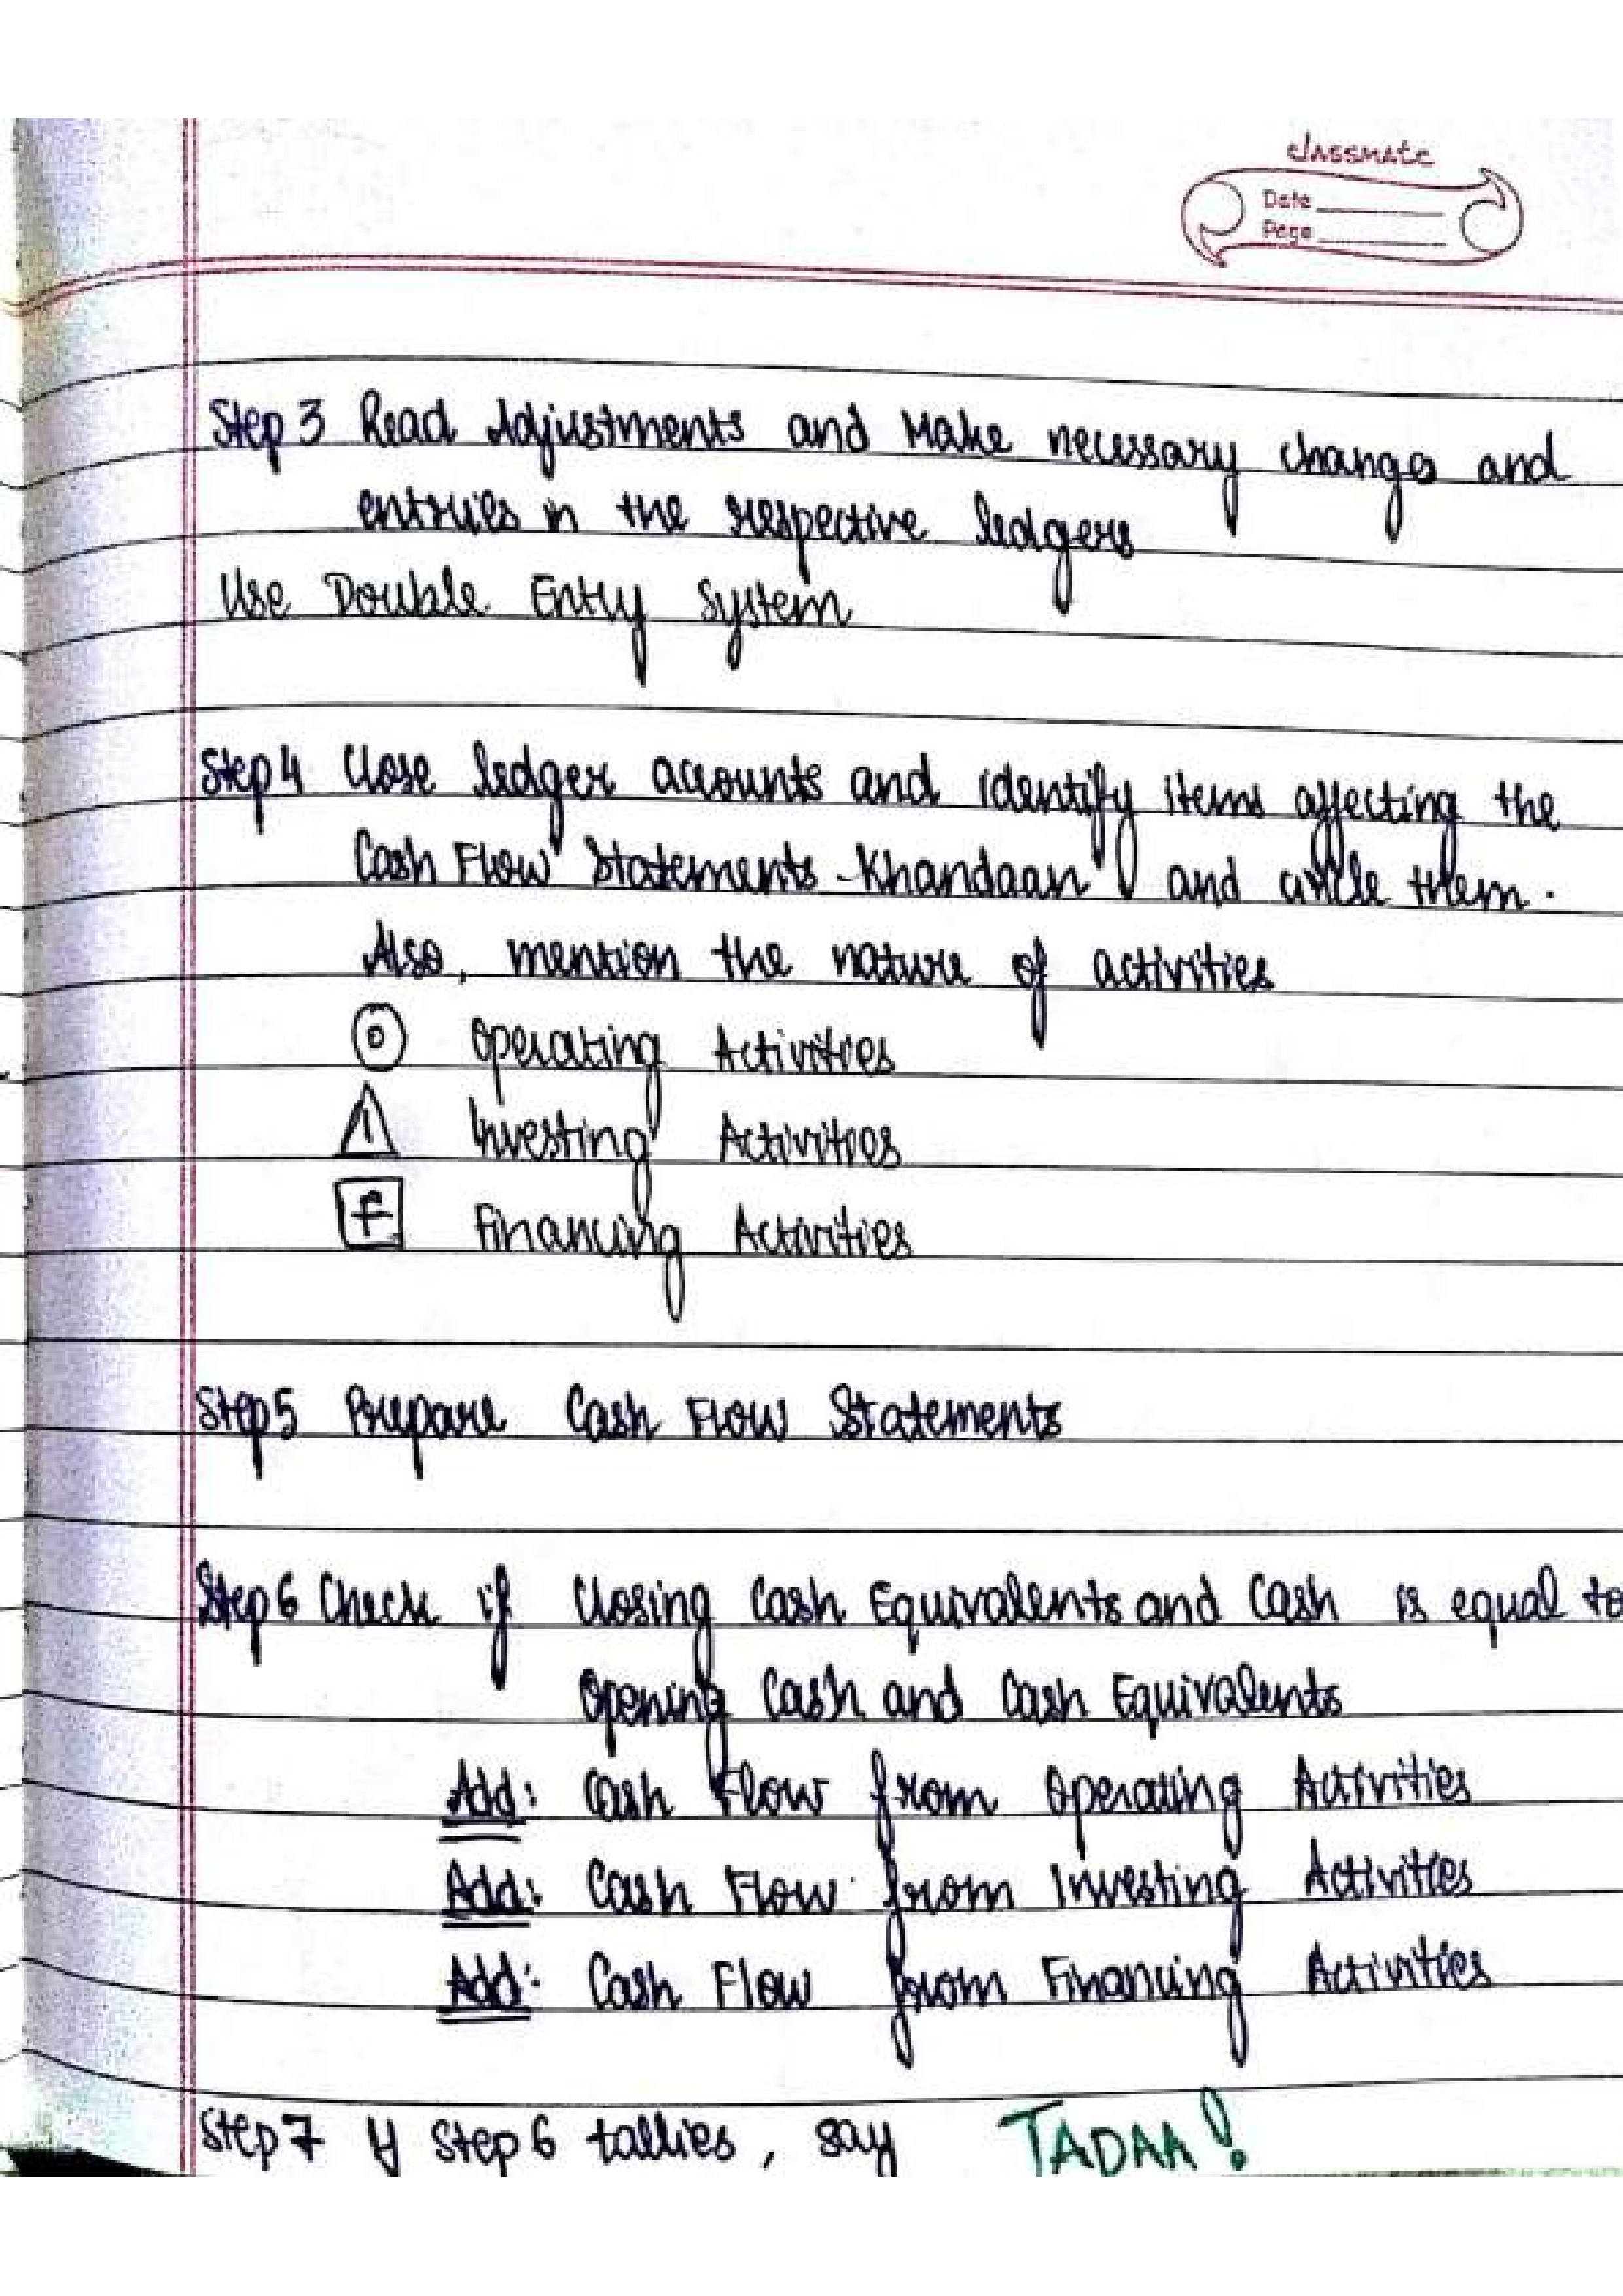 classmate
Date
Page
Step 3 Read Adjustments and Make necessary changes and
entries in the respective ledgers
Use Double Entry System
Step 4 Close ledger accounts and identify items affecting the
Cash Flow Statements - Khandaan and circle them.
Also, mention the nature of activities
O Operating Activities
I Investing Activities
F Financing Activities
Step 5 Prepare Cash Flow Statements
Step 6 Check if Closing Cash Equivalents and Cash is equal to
Opening Cash and Cash Equivalents
Add: Cash Flow from Operating Activities
Add: Cash Flow from Investing Activities
Add: Cash Flow from Financing Activities
Step 7 If Step 6 tallies, say TADAA!